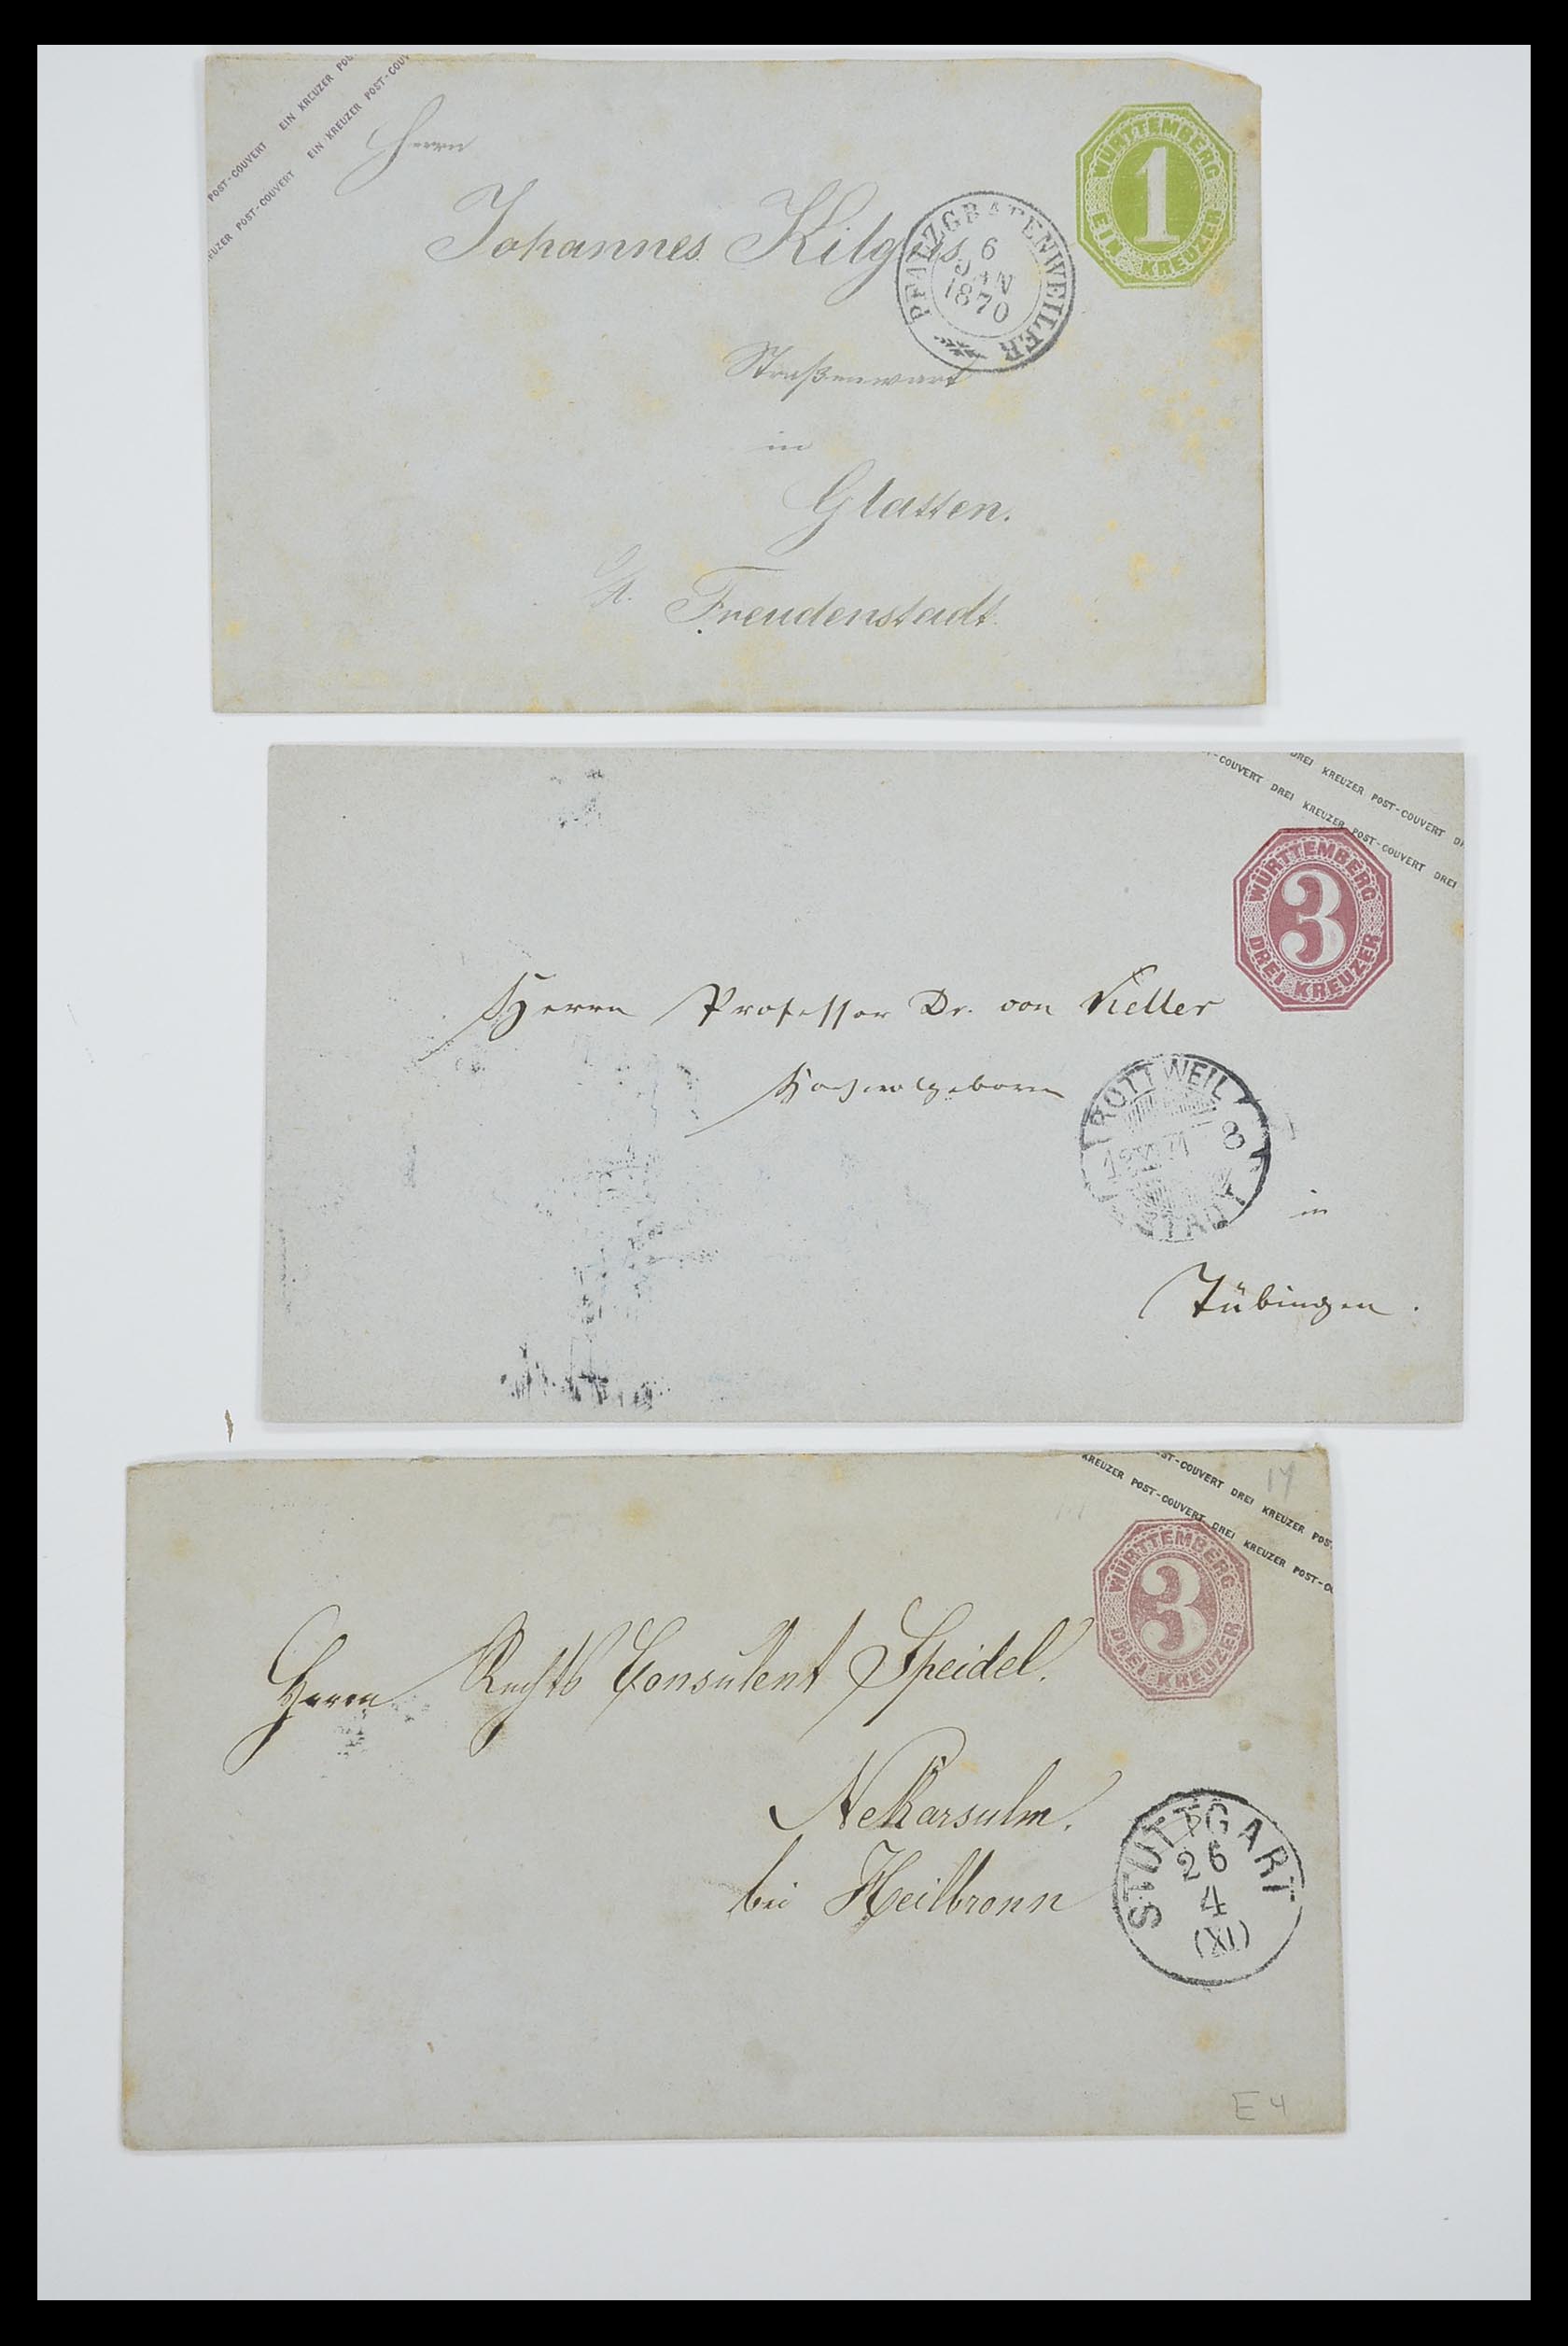 EIN KREUZER POS
POST-COUVERT
EIN KREUZER POST-COUV
EUZER POST-COUVERT
WÜRTTEMBERG
1
EIN KREUZER
Herrn
Johannes Kilgus
PFALZGRAFENWEILER
6
JAN
1870
Straßenwart
in
Glatten.
Freudenstadt
DREI KREUZER POST-COUVERT D
-COUVERT DREI KREUZER POST-COUVERT DREI
WÜRTTEMBERG
3
DREI KREUZER
Herrn Professor Dr. von Keller
Hochwolgeboren
ROTTWEIL
71 8
STADT
in
Tübingen.
ST-COUVERT DREI KREUZER POS
KREUZER POST-COUVERT DREI KREUZER POST-CO
WÜRTTEMBERG
3
DREI KREUZER
Herrn Rechts Consulent Speidel.
Nekarsulm.
bei Heilbronn
STUTTGART
26
4
(XI)
E4